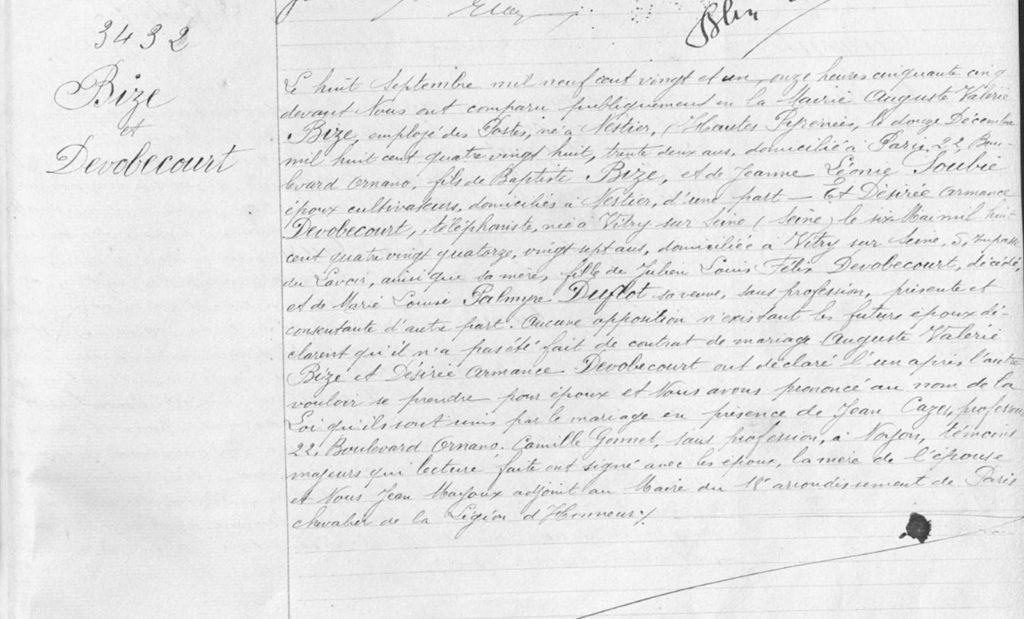 3432
Bize
et
Devobecourt
Blin
Le huit Septembre mil neuf cent vingt et un, onze heures cinquante cinq
devant Nous ont comparu publiquement en la Mairie Auguste Valérie
Bize, employé des Postes, né à Nestier, (Hautes Pyrénées, le douze Décembre
mil huit cent quatre vingt huit, trente deux ans, domicilié à Paris, 22 Bou-
levard Ornano, fils de Baptiste Bize, et de Jeanne Léonie Soubie
époux cultivateurs, domiciliés à Nestier, d'une part — Et Désirée Armance
Devobecourt, téléphoniste, née à Vitry sur Seine (Seine) le six Mai mil huit
cent quatre vingt quatorze, vingt sept ans, domiciliée à Vitry sur Seine, 5, Impasse
du Lavoir, ainsi que sa mère, fille de Julien Louis Félix Devobecourt, décédé,
et de Marie Louise Palmyre Duflot sa veuve, sans profession, présente et
consentante d'autre part. Aucune opposition n'existant les futurs époux dé-
clarent qu'il n'a pas été fait de contrat de mariage Auguste Valérie
Bize et Désirée Armance Devobecourt ont déclaré l'un après l'autre
vouloir se prendre pour époux et Nous avons prononcé au nom de la
Loi qu'ils sont unis par le mariage en présence de Jean Cazes, professeur
22, Boulevard Ornano. Camille Gonnet, sans profession, à Noyon, témoins
majeurs qui lecture faite ont signé avec les époux, la mère de l'épouse
et Nous Jean Mayoux adjoint au Maire du 18e arrondissement de Paris
chevalier de la Légion d'Honneur ./.